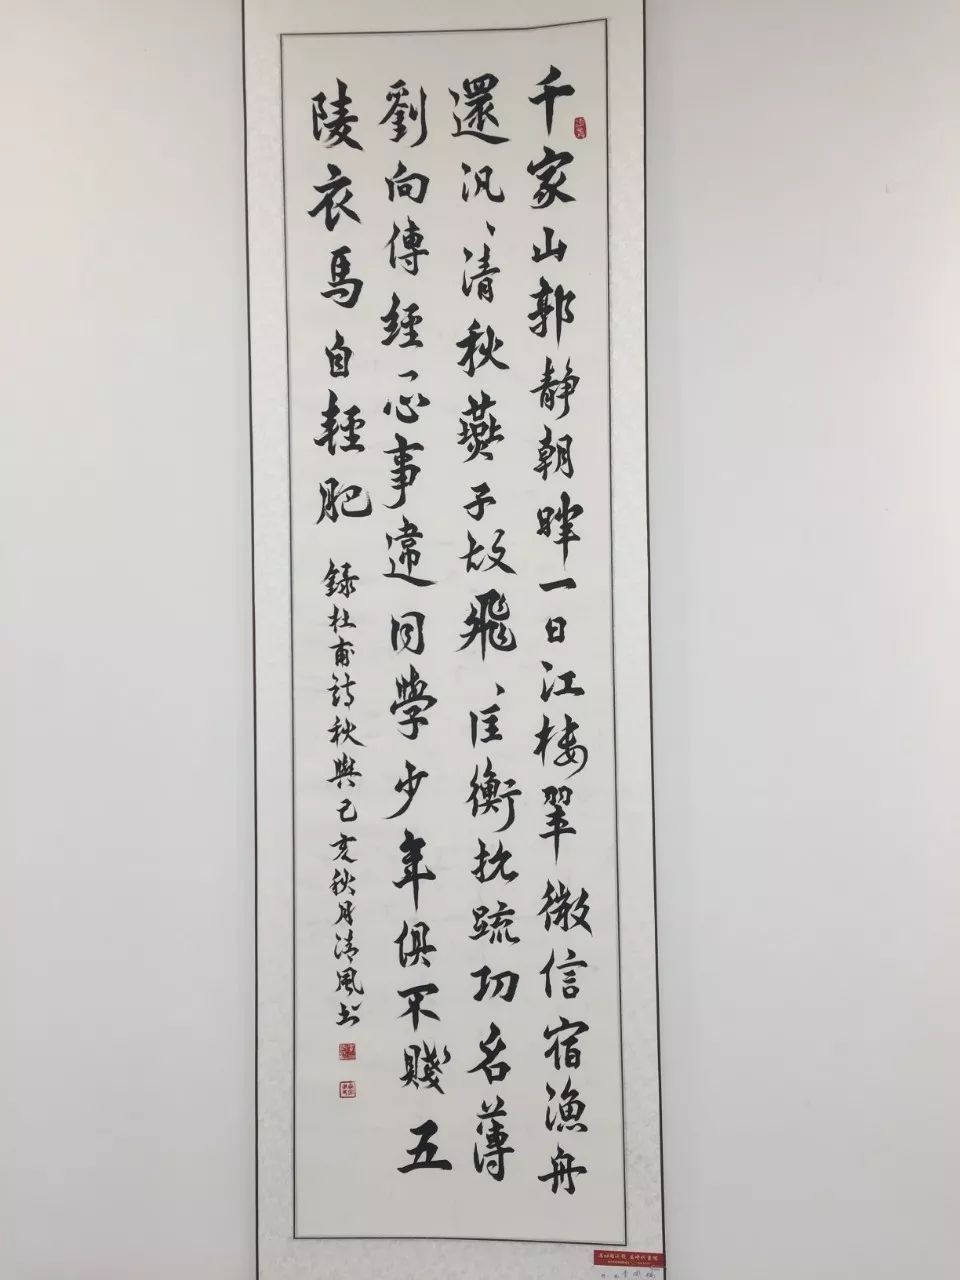 千家山郭静朝暉一日江楼翠微信宿漁舟
還汎〻清秋燕子故飛〻匡衡抗疏功名薄
劉向傳經心事違同學少年俱不賤五
陵衣馬自輕肥
録杜甫詩秋興己亥秋月清風书